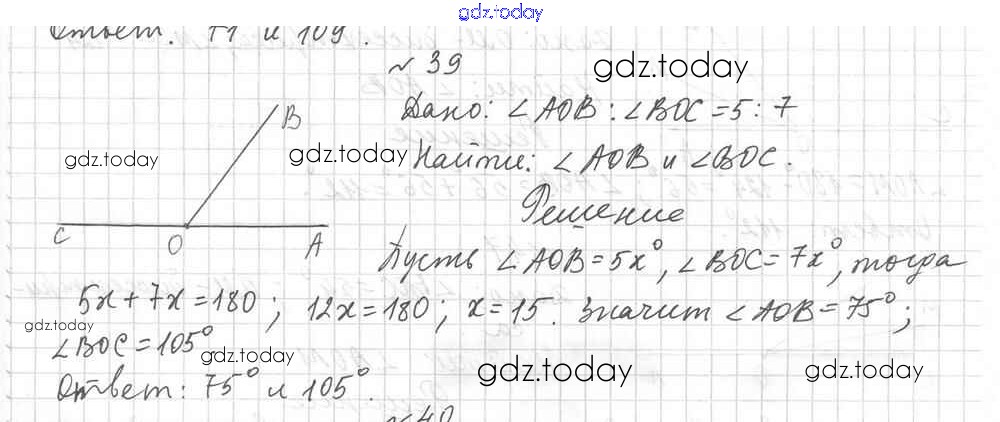 gdz.today
Ответ. 71 и 109.
№ 39
gdz.today
Дано: ∠AOB : ∠BOC = 5 : 7
B
gdz.today
gdz.today
Найти: ∠AOB и ∠BOC.
Решение
C
O
A
Пусть ∠AOB = 5x°, ∠BOC = 7x°, тогда
5x + 7x = 180; 12x = 180; x = 15. Значит ∠AOB = 75°;
gdz.today
∠BOC = 105°
gdz.today
gdz.today
gdz.today
Ответ: 75° и 105°.
№ 40